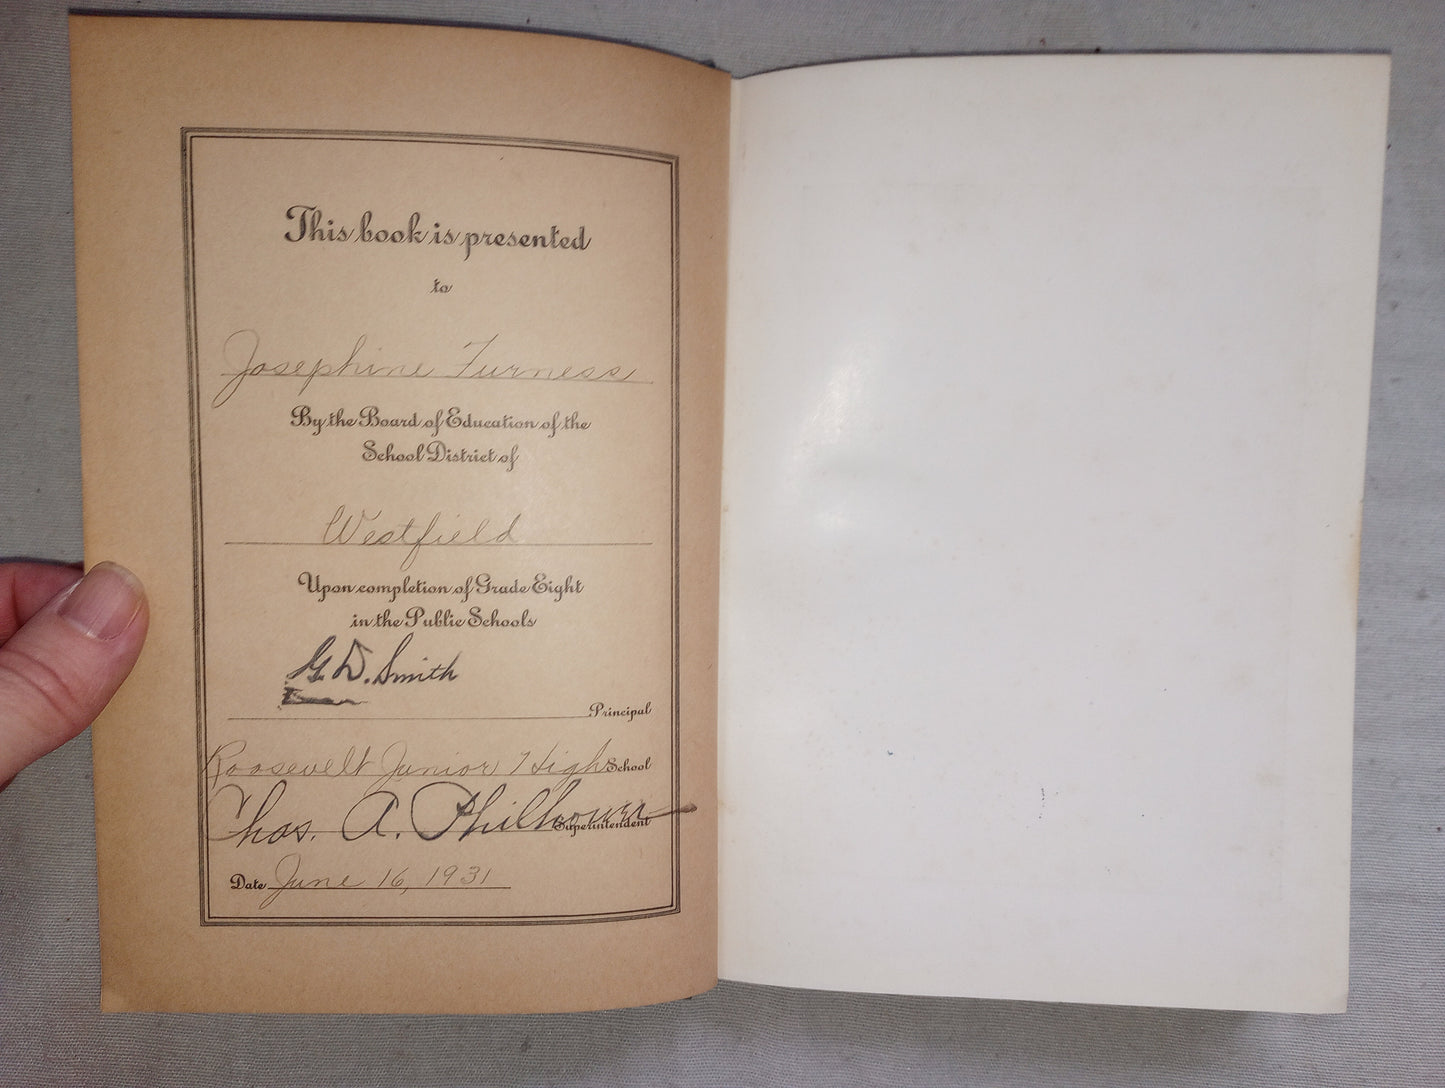 This book is presented
to
Josephine Furness
By the Board of Education of the
School District of
Westfield
Upon completion of Grade Eight
in the Public Schools
G. D. Smith
Principal
Roosevelt Junior High School
Chas. A. Philhower
Superintendent
Date June 16, 1931